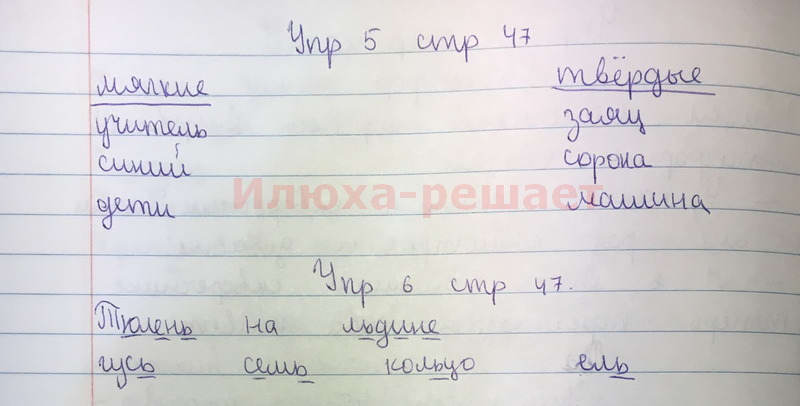 Упр 5 стр 47
мягкие твёрдые
учитель заяц
синий сорока
дети машина
Илюха-решает
Упр 6 стр 47.
Тюлень на льдине
гусь семь кольцо ель